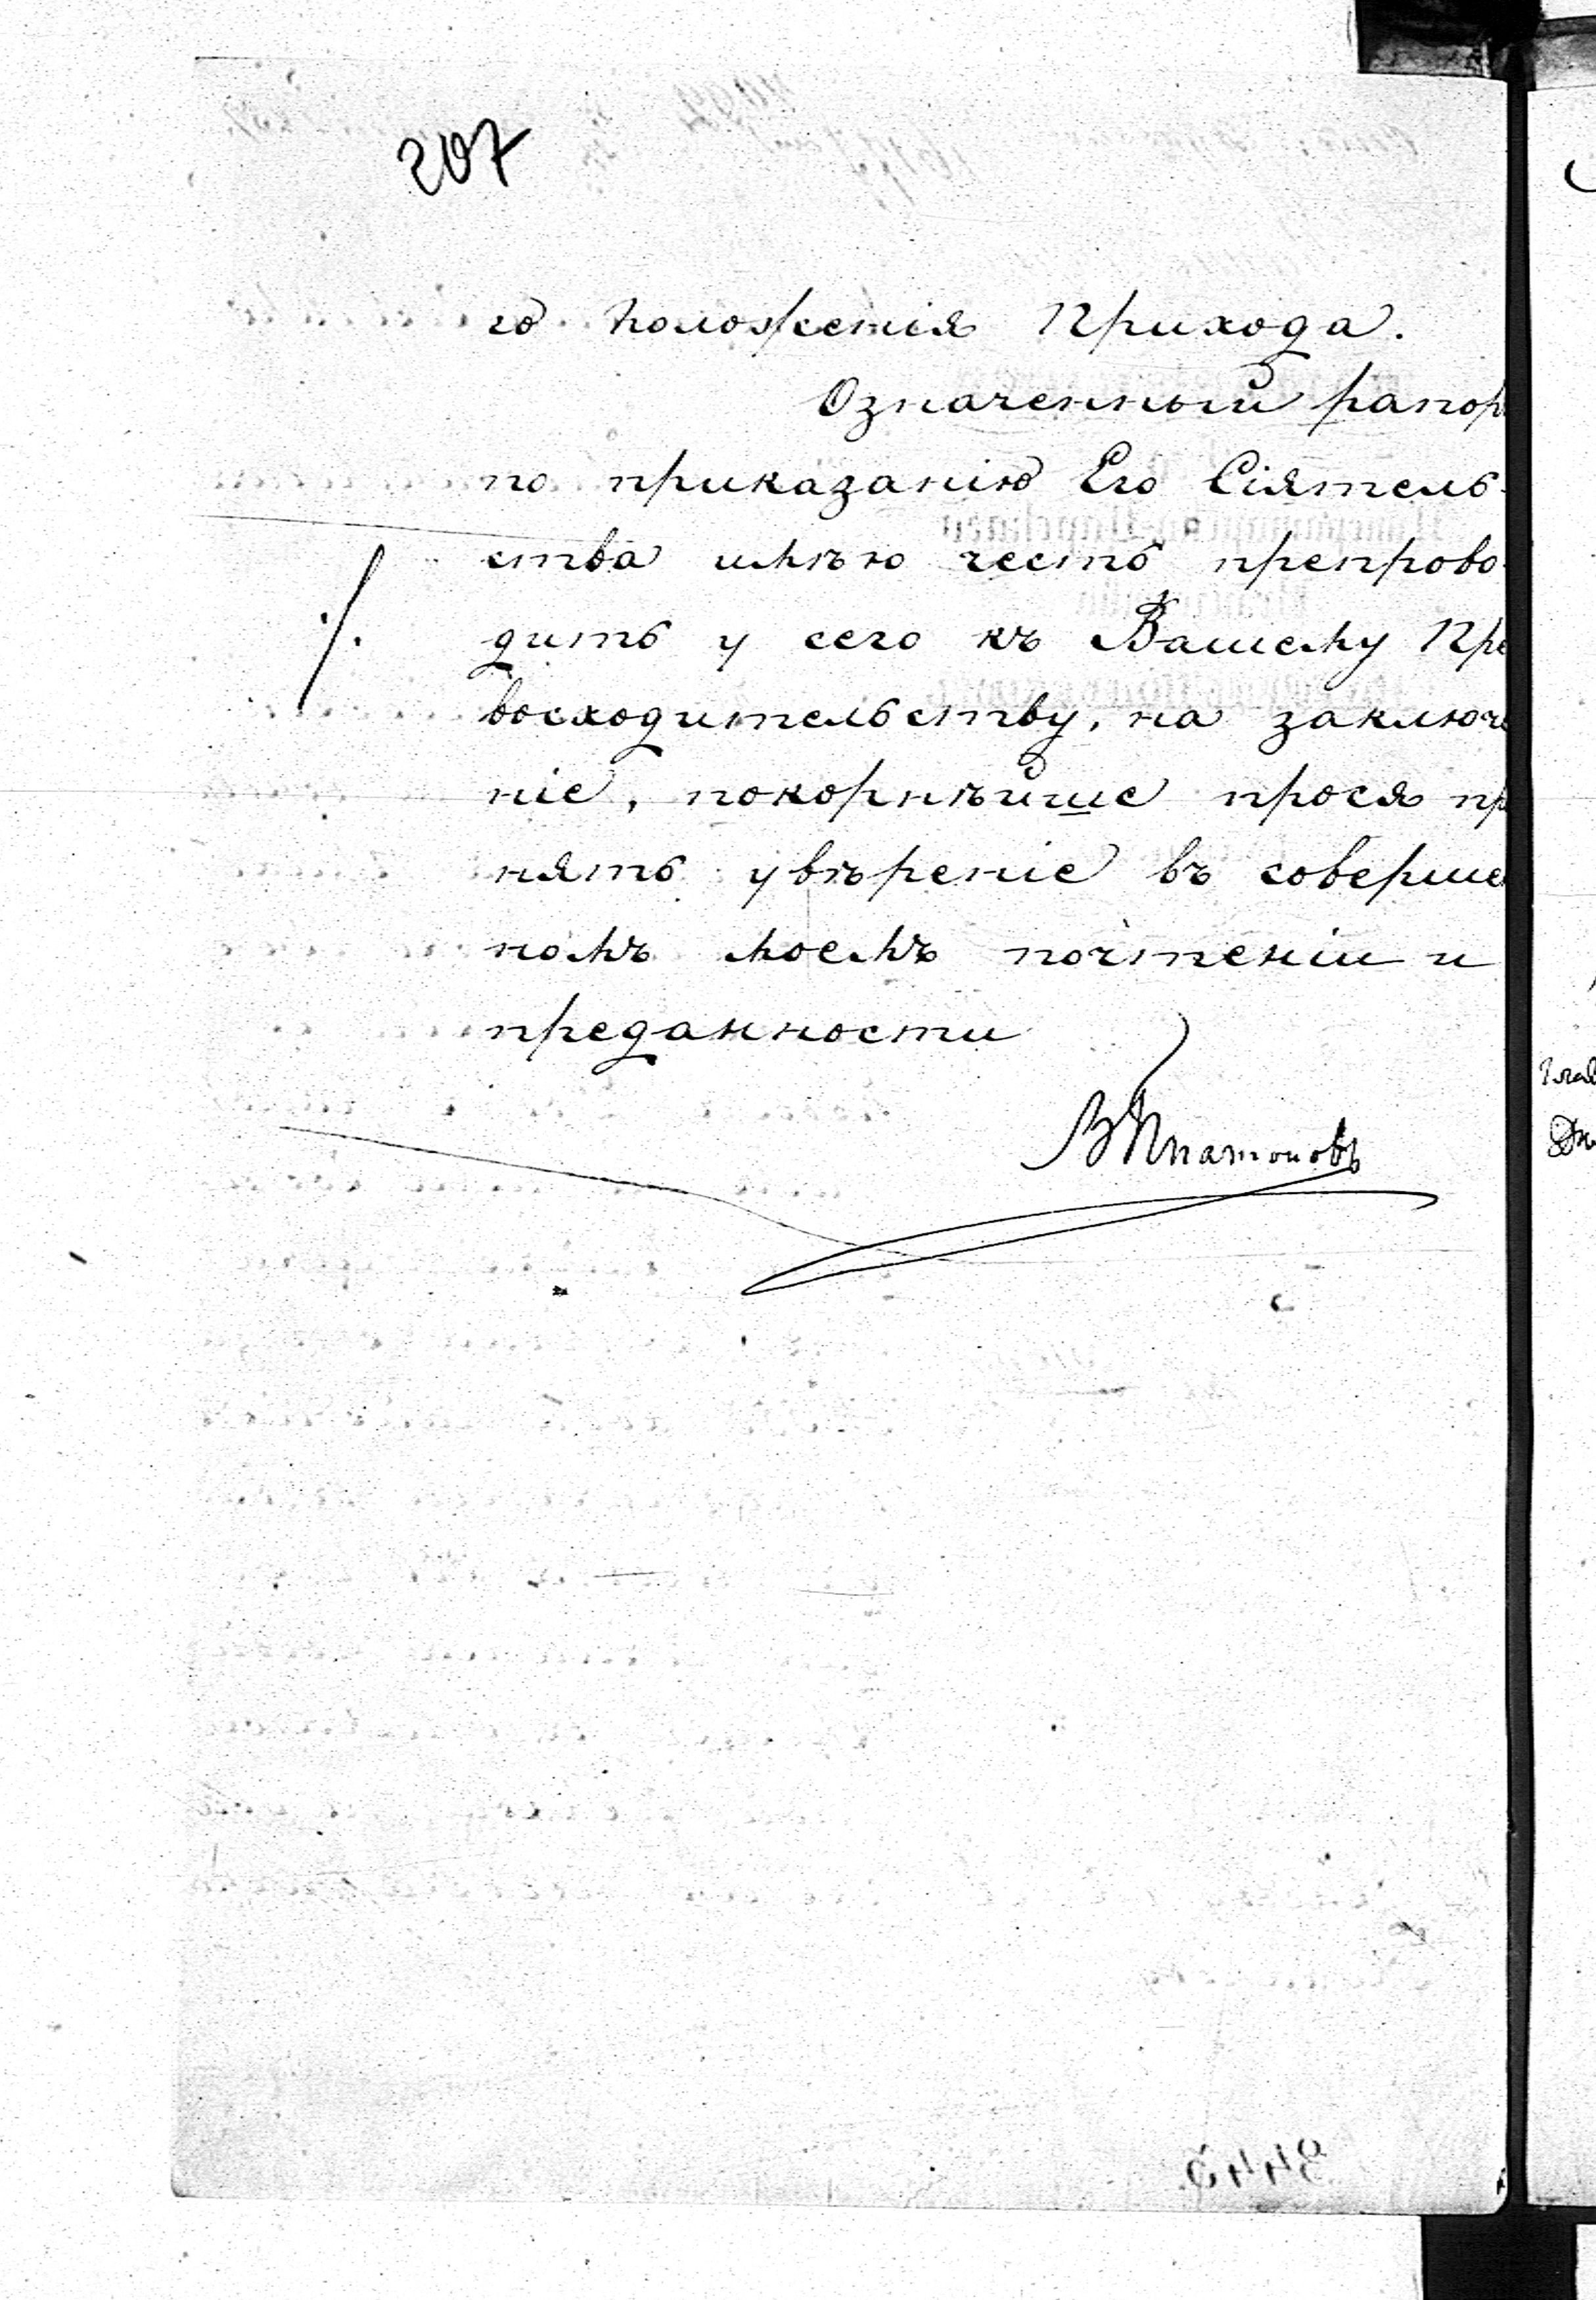 207
го положенія Прихода.
Означенный рапор
по приказанію Его Сіятель-
ства имѣю честь препрово-
дить у сего къ Вашему Пре
восходительству, на заключе
ніе, покорнѣйше прося пр
нять увѣреніе въ соверше
номъ моемъ почтеніи и
преданности
В Платоновъ